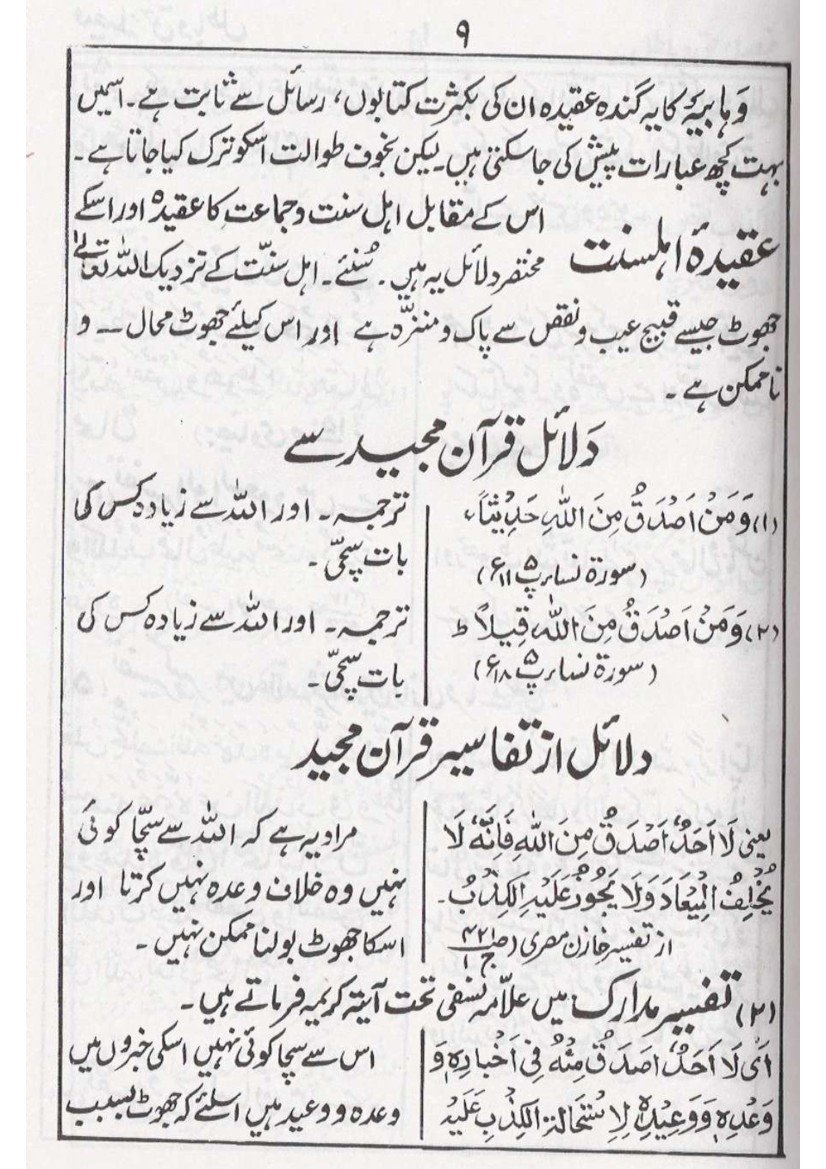 ۹
وہابیہ کا یہ گندہ عقیدہ ان کی بکثرت کتابوں، رسائل سے ثابت ہے۔ اسمیں
بہت کچھ عبارات پیش کی جاسکتی ہیں۔ لیکن بخوف طوالت اسکو ترک کیا جاتا ہے۔
عقیدۂ اہلسنت
اس کے مقابل اہل سنت وجماعت کا عقیدہ اور اسکے
مختصر دلائل یہ ہیں۔ سُنئے۔ اہل سنّت کے نزدیک اللہ تعالیٰ
جھوٹ جیسے قبیح عیب و نقص سے پاک و منزّہ ہے اور اس کیلئے جھوٹ محال ــ و
ناممکن ہے۔
دلائل قرآن مجید سے
(۱) وَمَنْ اَصْدَقُ مِنَ اللّٰہِ حَدِیْثًا،
(سورۃ نساء پ ۵ ع ۱۱)
ترجمہ۔ اور اللہ سے زیادہ کس کی
بات سچّی۔
(۲) وَمَنْ اَصْدَقُ مِنَ اللّٰہِ قِیلاً ط
(سورۃ نساء پ ۵ ع ۱۸)
ترجمہ۔ اور اللہ سے زیادہ کس کی
بات سچّی۔
دلائل از تفاسیر قرآن مجید
یعنی لَا اَحَدٌ اَصْدَقُ مِنَ اللّٰہِ فَاِنَّہٗ لَا
یُخْلِفُ الْمِیْعَادَ وَلَا یَجُوْزُ عَلَیْہِ الْکِذْبُ۔
از تفسیر خازن مصری (صـ ۴۲۱ ج ۱
مراد یہ ہے کہ اللہ سے سچّا کوئی
نہیں وہ خلاف وعدہ نہیں کرتا اور
اسکا جھوٹ بولنا ممکن نہیں۔
(۲) تفسیر مدارک میں علّامہ نسفی تحت آیۃ کریمہ فرماتے ہیں۔
اَیْ لَا اَحَدٌ اَصْدَقُ مِنْہُ فِی اَخْبَارِہٖ وَ
وَعْدِہٖ وَوَعِیْدِہٖ لِاِسْتِحَالَۃِ الْکِذْبِ عَلَیْہِ
اس سے سچا کوئی نہیں اسکی خبروں میں
وعدہ و وعید میں اسلئے کہ جھوٹ بسبب